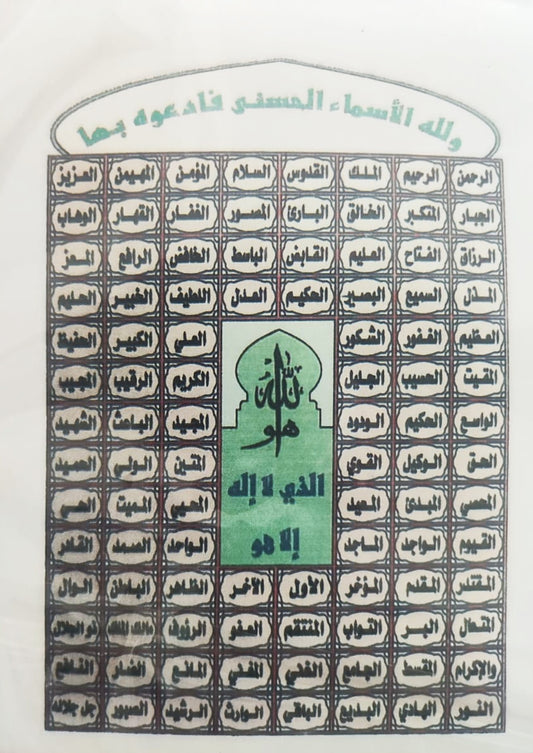 ولله الأسماء الحسنى فادعوه بها
الرحمن الرحيم الملك القدوس السلام المؤمن المهيمن العزيز
الجبار المتكبر الخالق البارئ المصور الغفار القهار الوهاب
الرزاق الفتاح العليم القابض الباسط الخافض الرافع المعز
المذل السميع البصير الحكيم العدل اللطيف الخبير الحليم
العظيم الغفور الشكور العلي الكبير الحفيظ
المقيت الحسيب الجليل الكريم الرقيب المجيب
الواسع الحكيم الودود المجيد الباعث الشهيد
الحق الوكيل القوي المتين الولي الحميد
المحصي المبدئ المعيد المحيي المميت الحي
القيوم الواجد الماجد الواحد الصمد القادر
الله
هو
الذي لا إله
إلا هو
المقتدر المقدم المؤخر الأول الآخر الظاهر الباطن الوال
المتعال البر التواب المنتقم العفو الرؤوف مالك الملك ذو الجلال
والإكرام المقسط الجامع الغني المغني المانع الضار النافع
النور الهادي البديع الباقي الوارث الرشيد الصبور جل جلاله